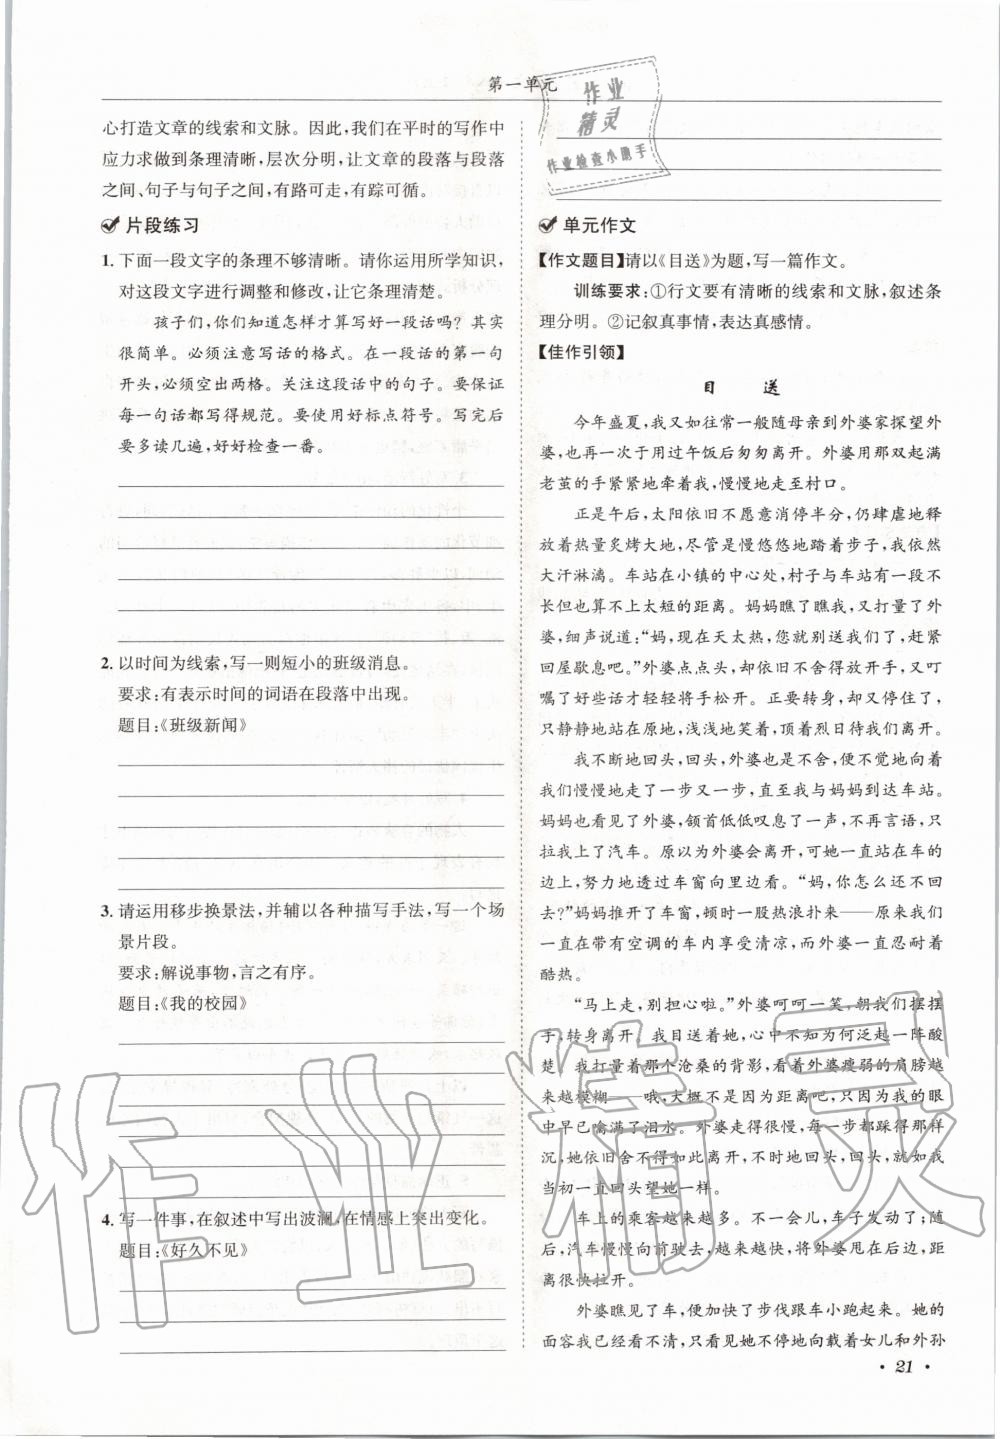 第一单元
心打造文章的线索和文脉。因此,我们在平时的写作中
应力求做到条理清晰,层次分明,让文章的段落与段落
之间、句子与句子之间,有路可走,有踪可循。
片段练习
1. 下面一段文字的条理不够清晰。请你运用所学知识,
对这段文字进行调整和修改,让它条理清楚。
孩子们,你们知道怎样才算写好一段话吗?其实
很简单。必须注意写话的格式。在一段话的第一句
开头,必须空出两格。关注这段话中的句子。要保证
每一句话都写得规范。要使用好标点符号。写完后
要多读几遍,好好检查一番。
2. 以时间为线索,写一则短小的班级消息。
要求:有表示时间的词语在段落中出现。
题目:《班级新闻》
3. 请运用移步换景法,并辅以各种描写手法,写一个场
景片段。
要求:解说事物,言之有序。
题目:《我的校园》
4. 写一件事,在叙述中写出波澜,在情感上突出变化。
题目:《好久不见》
作业
精灵
作业检查小助手
单元作文
【作文题目】请以《目送》为题,写一篇作文。
训练要求:①行文要有清晰的线索和文脉,叙述条
理分明。②记叙真事情,表达真感情。
【佳作引领】
目 送
今年盛夏,我又如往常一般随母亲到外婆家探望外
婆,也再一次于用过午饭后匆匆离开。外婆用那双起满
老茧的手紧紧地牵着我,慢慢地走至村口。
正是午后,太阳依旧不愿意消停半分,仍肆虐地释
放着热量炙烤大地,尽管是慢悠悠地踏着步子,我依然
大汗淋漓。车站在小镇的中心处,村子与车站有一段不
长但也算不上太短的距离。妈妈瞧了瞧我,又打量了外
婆,细声说道:“妈,现在天太热,您就别送我们了,赶紧
回屋歇息吧。”外婆点点头,却依旧不舍得放开手,又叮
嘱了好些话才轻轻将手松开。正要转身,却又停住了,
只静静地站在原地,浅浅地笑着,顶着烈日待我们离开。
我不断地回头,回头,外婆也是不舍,便不觉地向着
我们慢慢地走了一步又一步,直至我与妈妈到达车站。
妈妈也看见了外婆,颔首低低叹息了一声,不再言语,只
拉我上了汽车。原以为外婆会离开,可她一直站在车的
边上,努力地透过车窗向里边看。“妈,你怎么还不回
去?”妈妈推开了车窗,顿时一股热浪扑来——原来我们
一直在带有空调的车内享受清凉,而外婆一直忍耐着
酷热。
“马上走,别担心啦。”外婆呵呵一笑,朝我们摆摆
手,转身离开。我目送着她,心中不知为何泛起一阵酸
楚。我打量着那个沧桑的背影,看着外婆瘦弱的肩膀越
来越模糊——哦,大概不是因为距离吧,只因为我的眼
中早已噙满了泪水。外婆走得很慢,每一步都踩得那样
沉,她依旧舍不得如此离开,不时地回头,回头,就如我
当初一直回头望她一样。
车上的乘客越来越多。不一会儿,车子发动了;随
后,汽车慢慢向前驶去,越来越快,将外婆甩在后边,距
离很快拉开。
外婆瞧见了车,便加快了步伐跟车小跑起来。她的
面容我已经看不清,只看见她不停地向载着女儿和外孙
· 21 ·
作业精灵